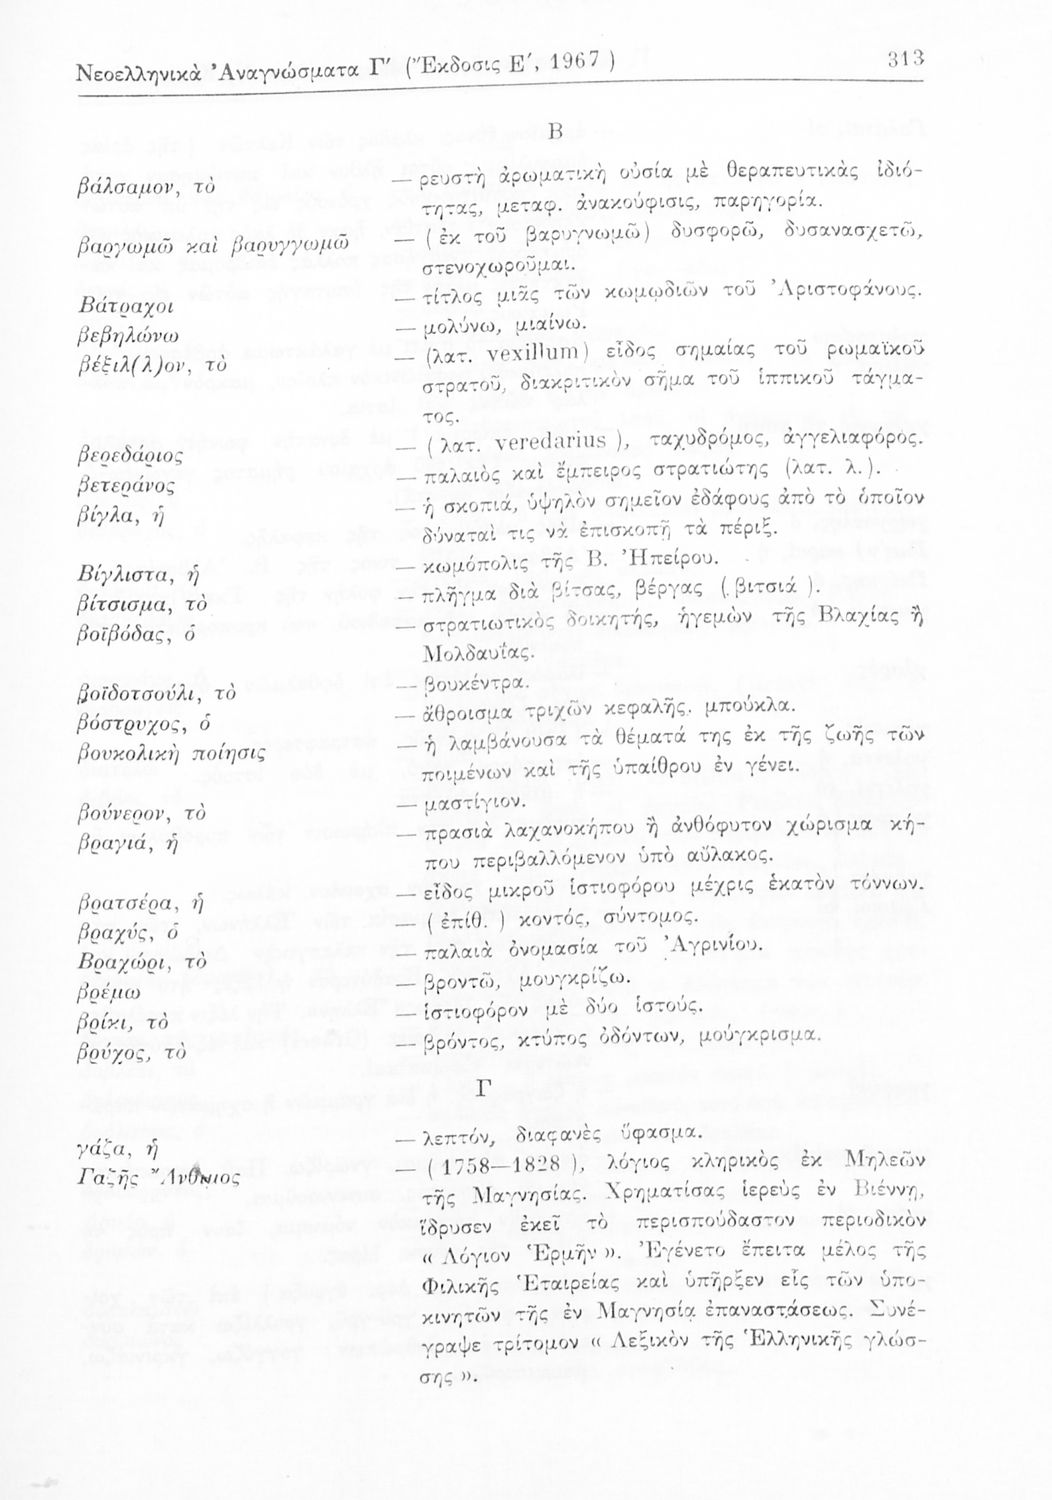 Νεοελληνικὰ Ἀναγνώσματα Γ΄ (Ἔκδοσις Ε΄, 1967 ) 313
Β
βάλσαμον, τὸ — ρευστὴ ἀρωματικὴ οὐσία μὲ θεραπευτικὰς ἰδιό-
τητας, μεταφ. ἀνακούφισις, παρηγορία.
βαργωμῶ καὶ βαρυγγωμῶ — ( ἐκ τοῦ βαρυγνωμῶ) δυσφορῶ, δυσανασχετῶ,
στενοχωροῦμαι.
Βάτραχοι — τίτλος μιᾶς τῶν κωμῳδιῶν τοῦ Ἀριστοφάνους.
βεβηλώνω — μολύνω, μιαίνω.
βέξιλ(λ)ον, τὸ — (λατ. vexillum) εἶδος σημαίας τοῦ ρωμαϊκοῦ
στρατοῦ, διακριτικὸν σῆμα τοῦ ἱππικοῦ τάγμα-
τος.
βερεδάριος — ( λατ. veredarius ), ταχυδρόμος, ἀγγελιαφόρος.
βετεράνος — παλαιὸς καὶ ἔμπειρος στρατιώτης (λατ. λ.).
βίγλα, ἡ — ἡ σκοπιά, ὑψηλὸν σημεῖον ἐδάφους ἀπὸ τὸ ὁποῖον
δύναταί τις νὰ ἐπισκοπῇ τὰ πέριξ.
Βίγλιστα, ἡ — κωμόπολις τῆς Β. Ἠπείρου.
βίτσισμα, τὸ — πλῆγμα διὰ βίτσας, βέργας (. βιτσιά ).
βοϊβόδας, ὁ — στρατιωτικὸς διοικητής, ἡγεμὼν τῆς Βλαχίας ἢ
Μολδαυΐας.
βοϊδοτσούλι, τὸ — βουκέντρα.
βόστρυχος, ὁ — ἄθροισμα τριχῶν κεφαλῆς, μπούκλα.
βουκολικὴ ποίησις — ἡ λαμβάνουσα τὰ θέματά της ἐκ τῆς ζωῆς τῶν
ποιμένων καὶ τῆς ὑπαίθρου ἐν γένει.
βούνερον, τὸ — μαστίγιον.
βραγιά, ἡ — πρασιὰ λαχανοκήπου ἢ ἀνθόφυτον χώρισμα κή-
που περιβαλλόμενον ὑπὸ αὔλακος.
βρατσέρα, ἡ — εἶδος μικροῦ ἱστιοφόρου μέχρις ἑκατὸν τόννων.
βραχύς, ὁ — ( ἐπίθ. ) κοντός, σύντομος.
Βραχώρι, τὸ — παλαιὰ ὀνομασία τοῦ Ἀγρινίου.
βρέμω — βροντῶ, μουγκρίζω.
βρίκι, τὸ — ἱστιοφόρον μὲ δύο ἱστούς.
βρύχος, τὸ — βρόντος, κτύπος ὀδόντων, μούγκρισμα.
Γ
γάζα, ἡ — λεπτόν, διαφανὲς ὕφασμα.
Γαζῆς Ἄνθιμος — ( 1758—1828 ), λόγιος κληρικὸς ἐκ Μηλεῶν
τῆς Μαγνησίας. Χρηματίσας ἱερεὺς ἐν Βιέννῃ,
ἵδρυσεν ἐκεῖ τὸ περισπούδαστον περιοδικὸν
« Λόγιον Ἑρμῆν ». Ἐγένετο ἔπειτα μέλος τῆς
Φιλικῆς Ἑταιρείας καὶ ὑπῆρξεν εἷς τῶν ὑπο-
κινητῶν τῆς ἐν Μαγνησίᾳ ἐπαναστάσεως. Συνέ-
γραψε τρίτομον « Λεξικὸν τῆς Ἑλληνικῆς γλώσ-
σης ».